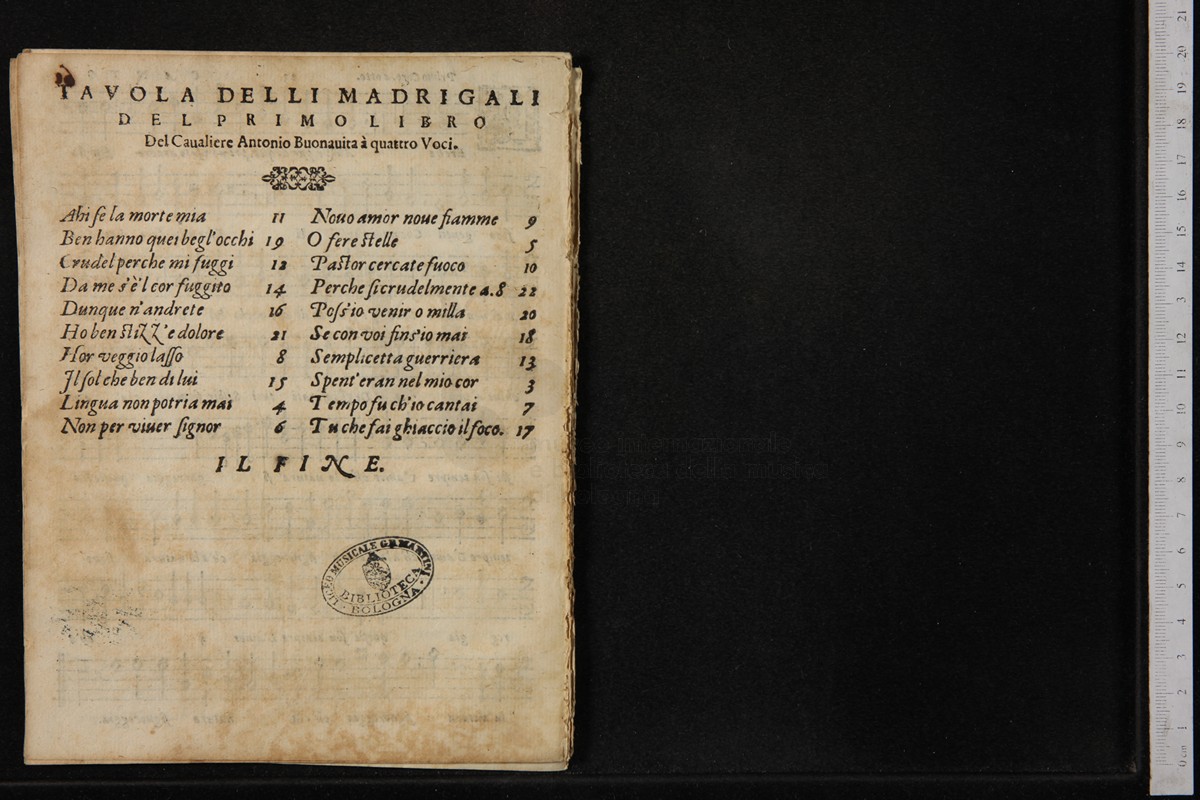 TAVOLA DELLI MADRIGALI
DEL PRIMO LIBRO
Del Caualiere Antonio Buonauita à quattro Voci.
Ahi se la morte mia 11
Ben hanno quei begl'occhi 19
Crudel perche mi fuggi 12
Da me s'è'l cor fuggito 14
Dunque n'andrete 16
Ho ben stizz'e dolore 21
Hor veggio lasso 8
Il sol che ben di lui 15
Lingua non potria mai 4
Non per viuer signor 6
Nouo amor noue fiamme 9
O fere stelle 5
Pastor cercate fuoco 10
Perche si crudelmente a.8 22
Poss'io venir o milla 20
Se con voi fins'io mai 18
Semplicetta guerriera 13
Spent'eran nel mio cor 3
Tempo fu ch'io cantai 7
Tu che fai ghiaccio il foco. 17
IL FINE.
LICEO MUSICALE G.B. MARTINI
BIBLIOTECA
BOLOGNA
0 cm 1 2 3 4 5 6 7 8 9 10 11 12 13 14 15 16 17 18 19 20 21